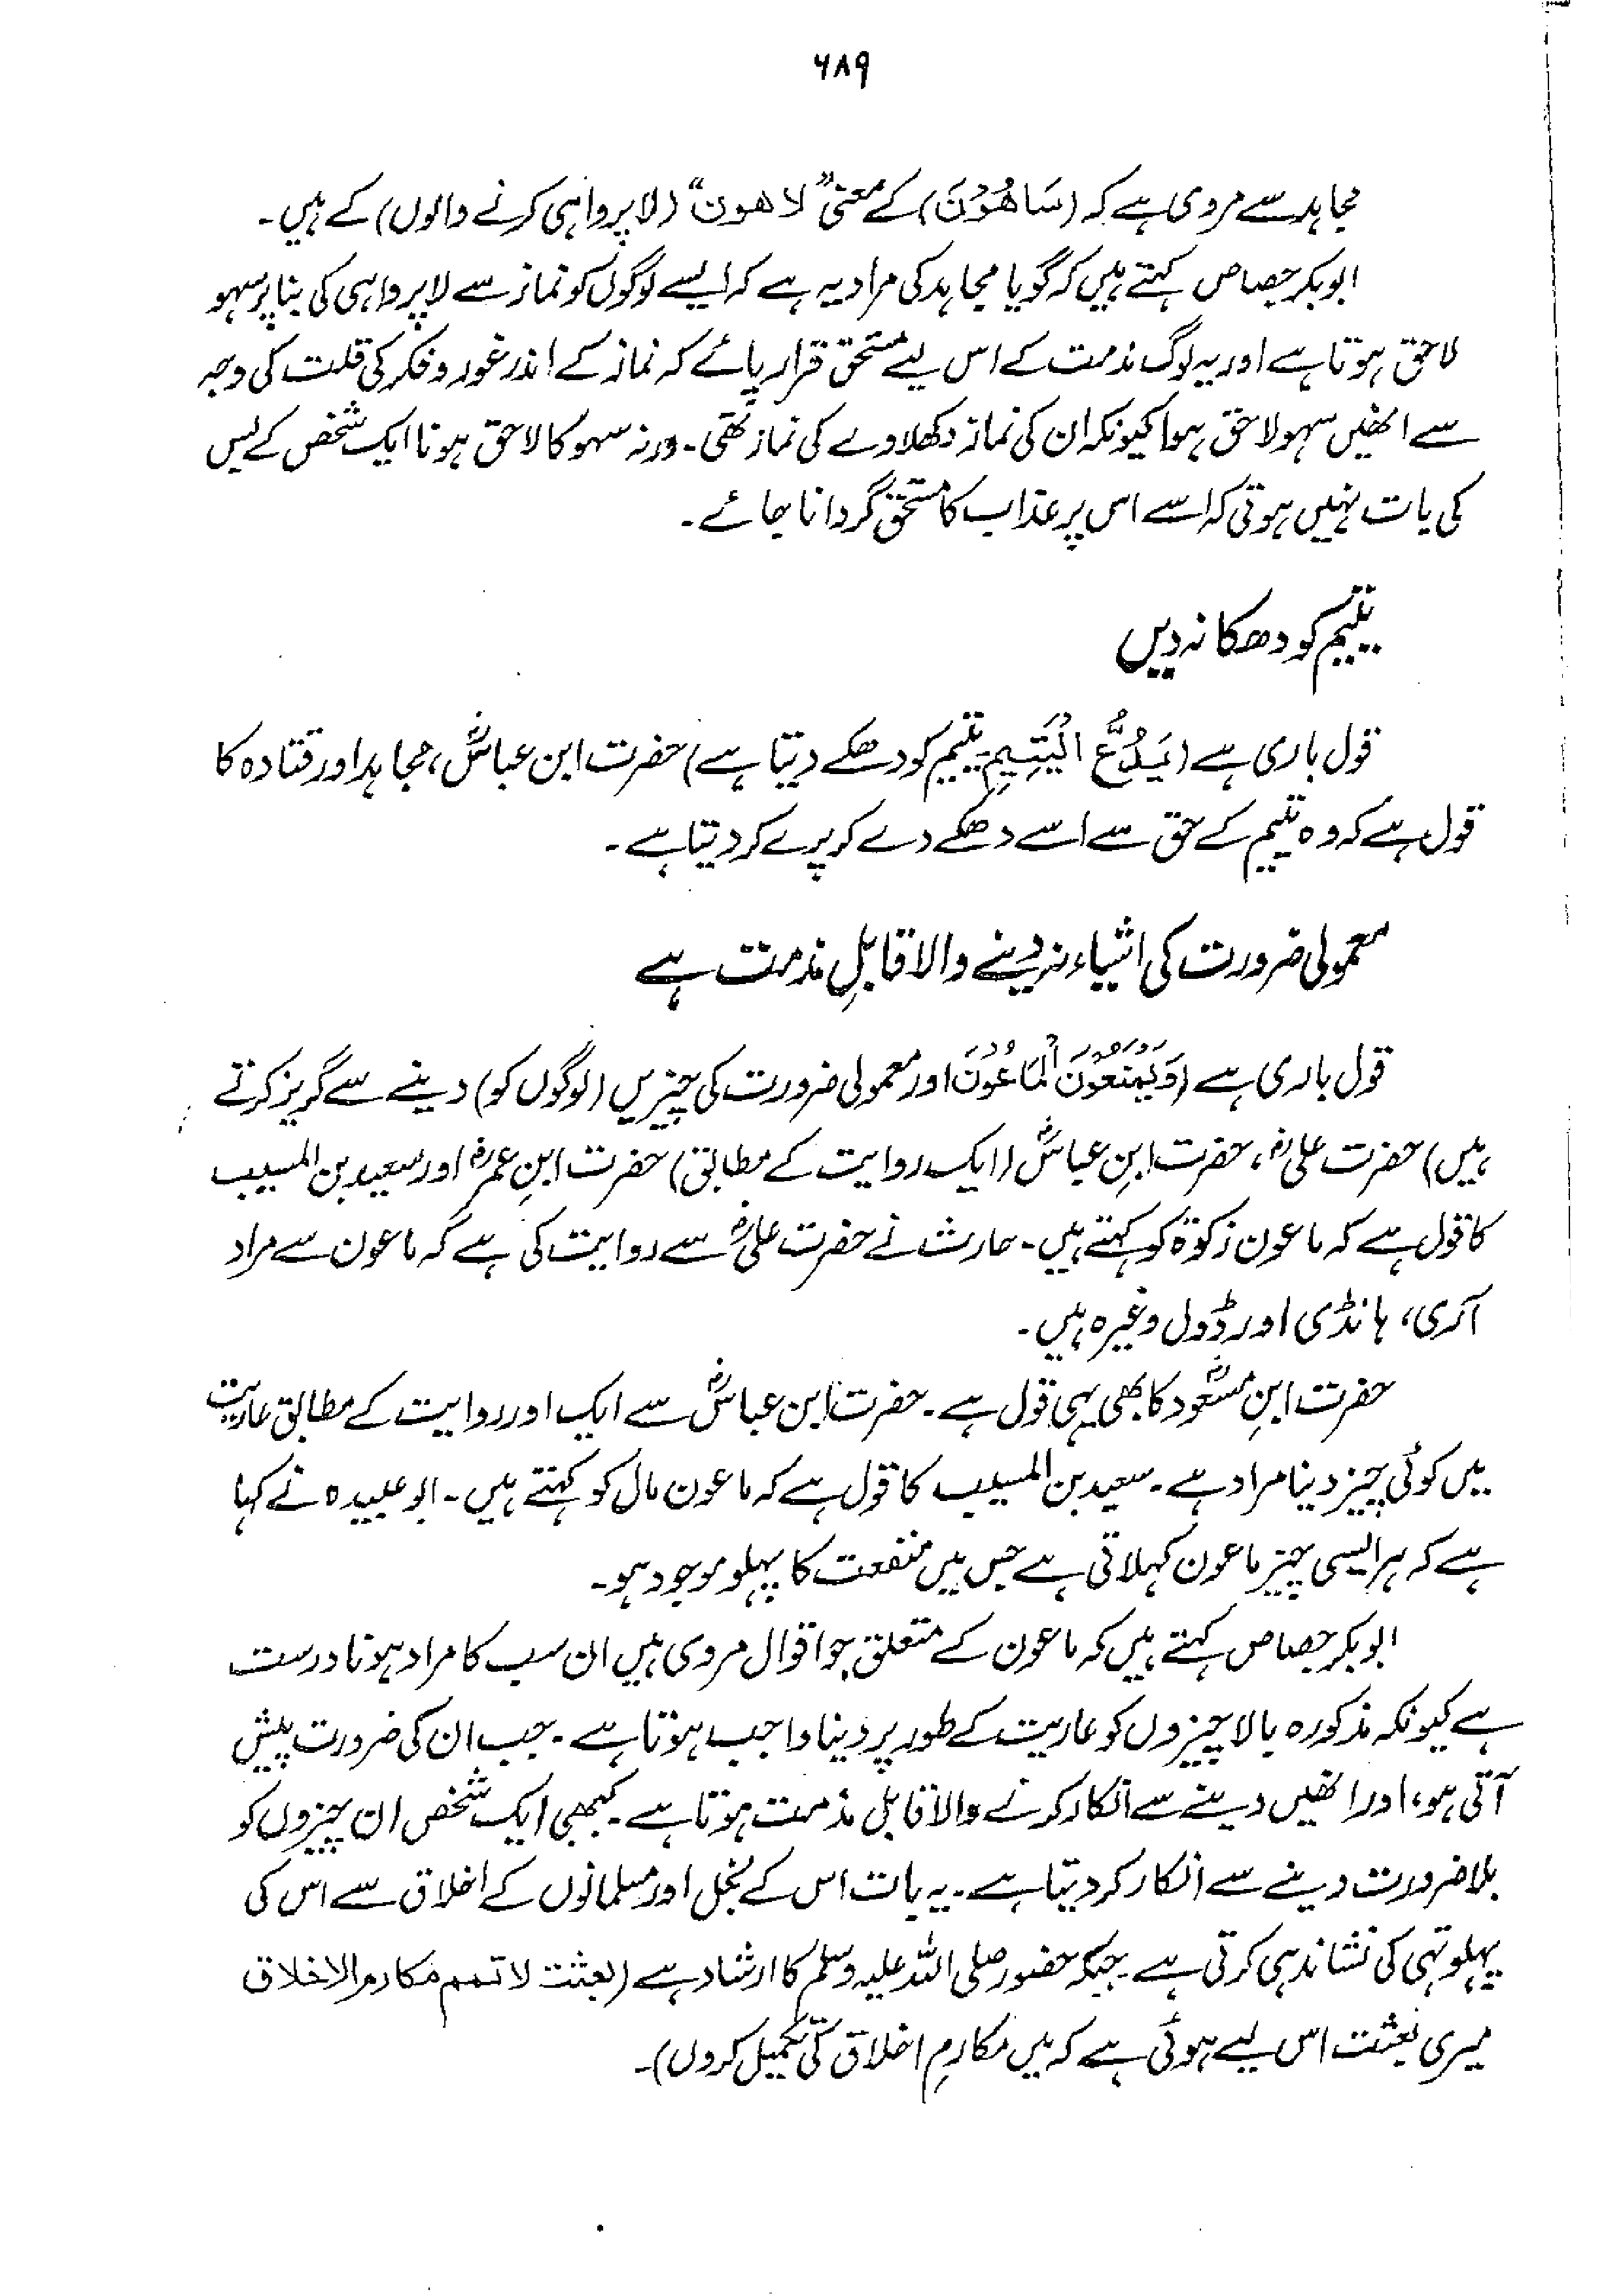 ۶۸۹
مجاہد سے مروی ہے کہ (سَاھُوْنَ) کے معنی "لاھون" (لاپرواہی کرنے والوں) کے ہیں۔
ابوبکر جصاص کہتے ہیں کہ گویا مجاہد کی مراد یہ ہے کہ ایسے لوگوں کو نماز سے لاپرواہی کی بنا پر سہو
لاحق ہوتا ہے اور یہ لوگ مذمت کے اس لیے مستحق قرار پائے کہ نماز کے اندر غور و فکر کی قلت کی وجہ
سے انھیں سہو لاحق ہوا کیونکہ ان کی نماز دکھلاوے کی نماز تھی۔ ورنہ سہو کا لاحق ہونا ایک شخص کے بس
کی بات نہیں ہوتی کہ اسے اس پر عذاب کا مستحق گردانا جائے۔
یتیم کو دھکا نہ دیں
قول باری ہے (یَدُعُّ الْیَتِیمَ۔ یتیم کو دھکے دیتا ہے) حضرت ابن عباسؓ، مجاہد اور قتادہ کا
قول ہے کہ وہ یتیم کے حق سے اسے دھکے دے کر پرے کر دیتا ہے۔
معمولی ضرورت کی اشیاء نہ دینے والا قابلِ مذمت ہے
قول باری ہے (وَیَمْنَعُوْنَ الْمَاعُوْنَ اور معمولی ضرورت کی چیزیں (لوگوں کو) دینے سے گریز کرتے
ہیں) حضرت علیؓ، حضرت ابنِ عباسؓ (ایک روایت کے مطابق) حضرت ابنِ عمرؓ اور سعید بن المسیب
کا قول ہے کہ ماعون زکوٰۃ کو کہتے ہیں۔ حارث نے حضرت علیؓ سے روایت کی ہے کہ ماعون سے مراد
آری، ہانڈی اور ڈول وغیرہ ہیں۔
حضرت ابنِ مسعودؓ کا بھی یہی قول ہے۔ حضرت ابن عباسؓ سے ایک اور روایت کے مطابق عاریت
میں کوئی چیز دینا مراد ہے۔ سعید بن المسیب کا قول ہے کہ ماعون مال کو کہتے ہیں۔ ابو عبیدہ نے کہا
ہے کہ ہر ایسی چیز ماعون کہلاتی ہے جس میں منفعت کا پہلو موجود ہو۔
ابوبکر جصاص کہتے ہیں کہ ماعون کے متعلق جو اقوال مروی ہیں ان سب کا مراد ہونا درست
ہے کیونکہ مذکورہ بالا چیزوں کو عاریت کے طور پر دینا واجب ہوتا ہے۔ جب ان کی ضرورت پیش
آتی ہو، اور انھیں دینے سے انکار کرنے والا قابل مذمت ہوتا ہے۔ کبھی ایک شخص ان چیزوں کو
بلا ضرورت دینے سے انکار کر دیتا ہے۔ یہ بات اس کے بخل اور مسلمانوں کے اخلاق سے اس کی
پہلو تہی کی نشاندہی کرتی ہے جبکہ حضور صلی اللہ علیہ وسلم کا ارشاد ہے (بعثت لاتمم مکارم الاخلاق
میری بعثت اس لیے ہوئی ہے کہ میں مکارمِ اخلاق کی تکمیل کروں)۔